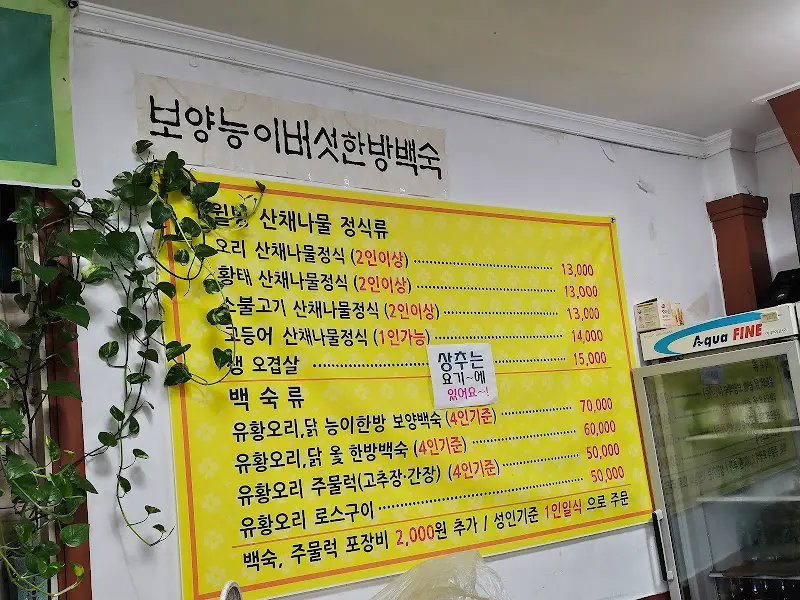 보양능이버섯한방백숙
웰빙 산채나물 정식류
오리 산채나물정식 (2인이상) 13,000
황태 산채나물정식 (2인이상) 13,000
소불고기 산채나물정식 (2인이상) 13,000
고등어 산채나물정식 (1인가능) 14,000
생 오겹살 15,000
상추는
요기~에
있어요~!
백 숙 류
유황오리,닭 능이한방 보양백숙(4인기준) 70,000
유황오리,닭 옻 한방백숙 (4인기준) 60,000
유황오리 주물럭(고추장·간장) (4인기준) 50,000
유황오리 로스구이 50,000
백숙, 주물럭 포장비 2,000원 추가 / 성인기준 1인일식 으로 주문
Aqua FINE